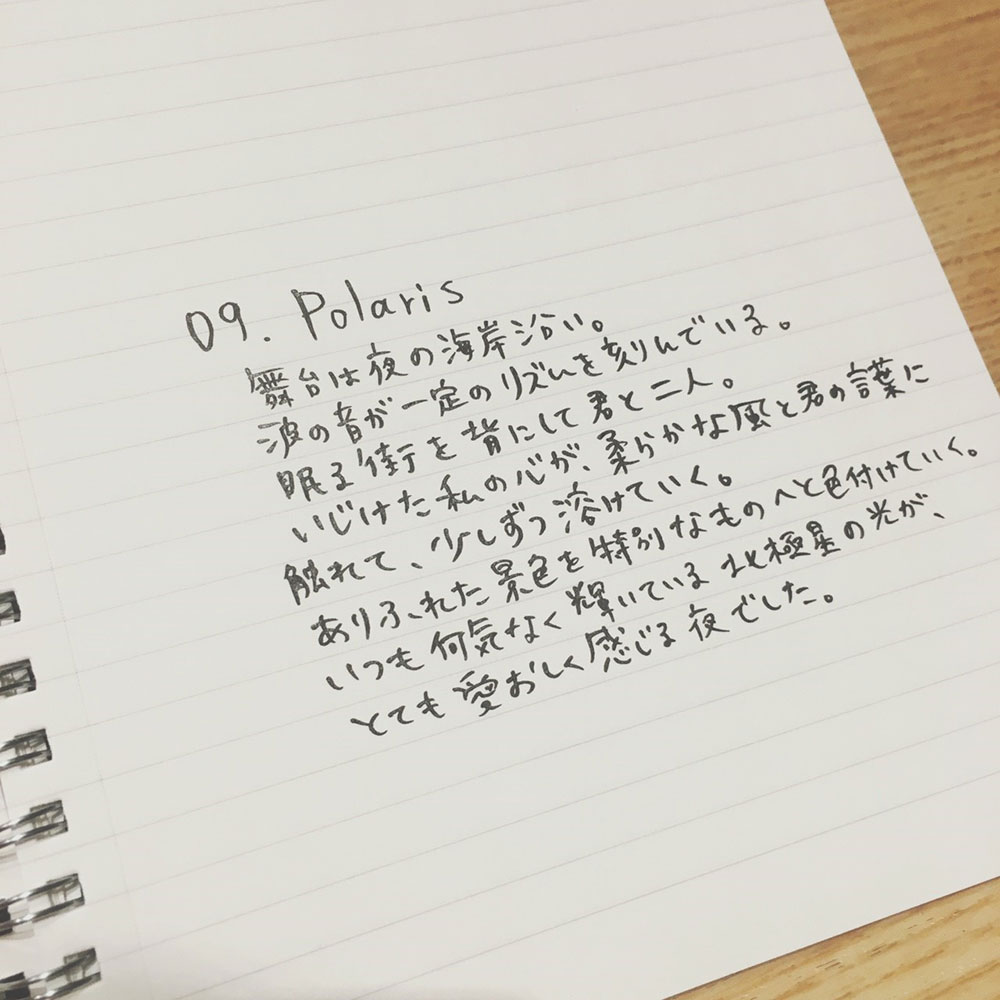 09. Polaris
舞台は夜の海岸沿い。
波の音が一定のリズムを刻んでいる。
眠る街を背にして君と二人。
いじけた私の心が、柔らかな風と君の言葉に
触れて、少しずつ溶けていく。
ありふれた景色を特別なものへと色付けていく。
いつも何気なく輝いている北極星の光が、
とても愛おしく感じる夜でした。